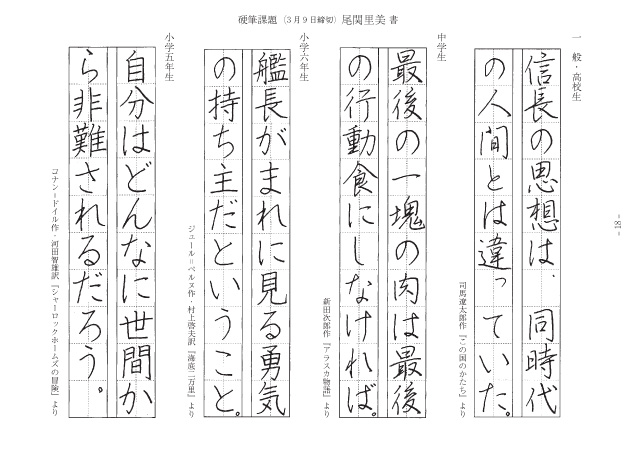 硬筆課題（3月9日締切）尾関里美 書
一般・高校生
信長の思想は、同時代
の人間とは違っていた。
司馬遼太郎作・『この国のかたち』より
中学生
最後の一塊の肉は最後
の行動食にしなければ。
新田次郎作『アラスカ物語』より
小学六年生
艦長がまれに見る勇気
の持ち主だということ。
ジュール＝ベルヌ作・村上啓夫訳『海底二万里』より
小学五年生
自分はどんなに世間か
ら非難されるだろう。
コナン＝ドイル作・河田智雄訳『シャーロックホームズの冒険』より